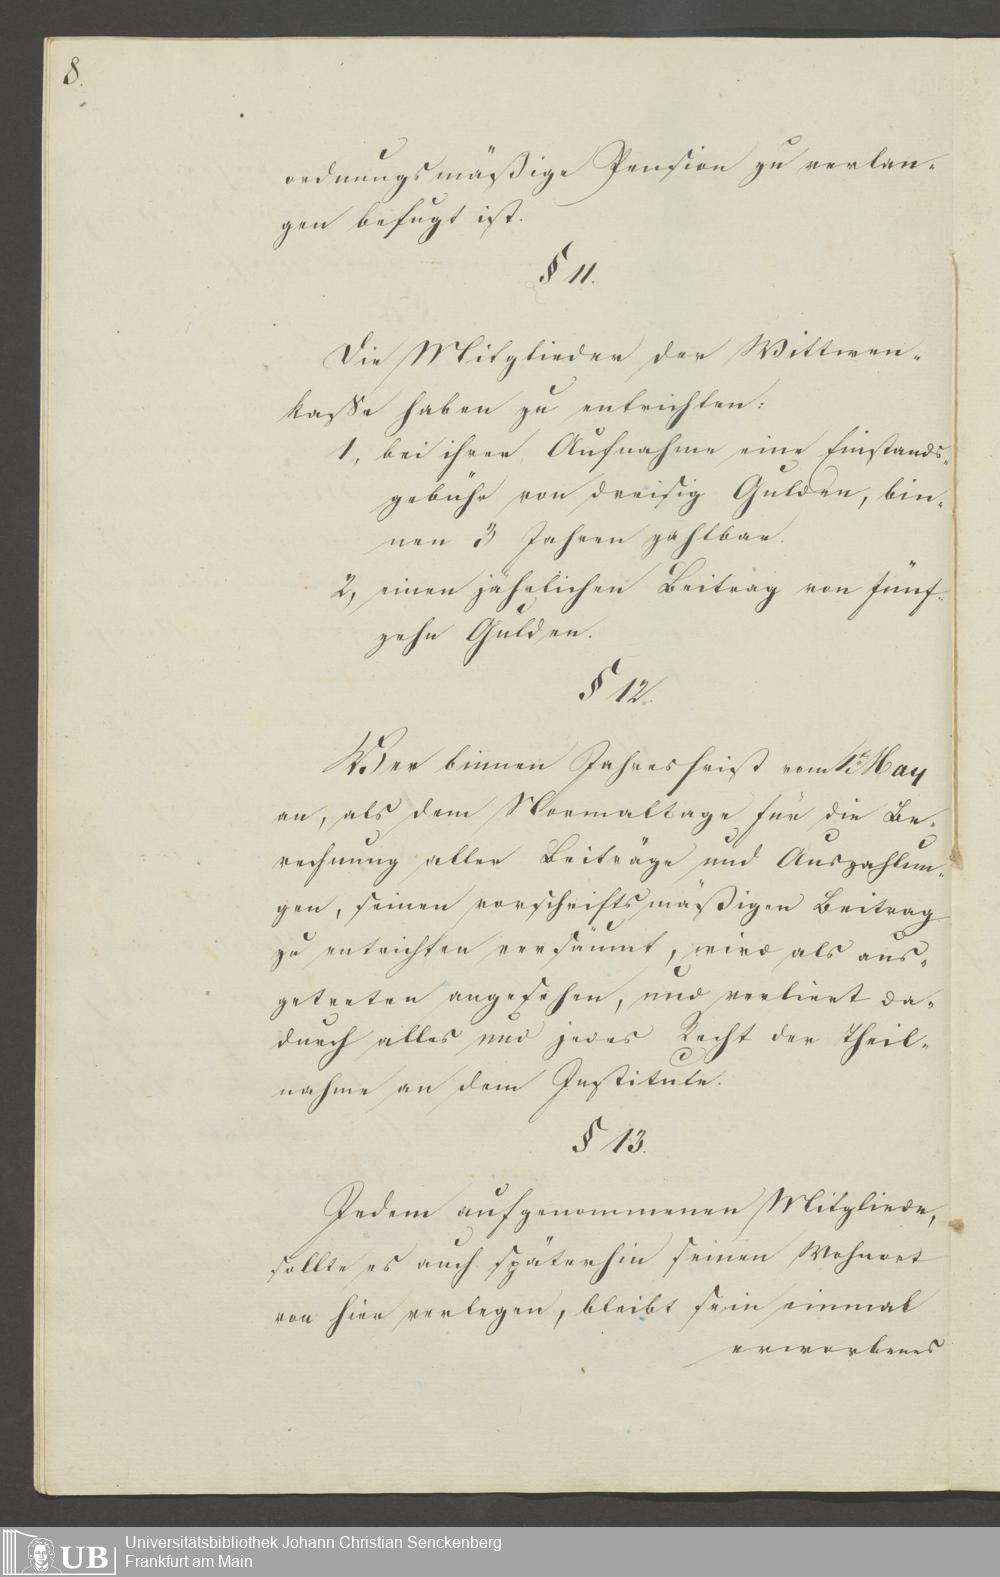 8.
ordnungsmäßige Pension zu verlan-
gen befugt ist.
§ 11.
Die Mitglieder der Wittwen-
kasse haben zu entrichten:
1, bei ihrer Aufnahme eine Einstands-
gebühr von dreisig Gulden, bin-
nen 3 Jahren zahlbar.
2, einen jährlichen Beitrag von fünf-
zehn Gulden.
§ 12.
Wer binnen Jahresfrist vom 1t May
an, als dem Normaltage für die Be-
rechnung aller Beiträge und Auszahlun-
gen, seinen vorschriftsmäßigen Beitrag
zu entrichten versäumt, wird als aus-
getreten angesehen, und verliert da-
durch alles und jedes Recht der Theil-
nahme an dem Institute.
§ 13.
Jedem aufgenommenen Mitgliede,
sollte es auch späterhin seinen Wohnort
von hier verlegen, bleibt sein einmal
erworbenes
UB Universitätsbibliothek Johann Christian Senckenberg
Frankfurt am Main